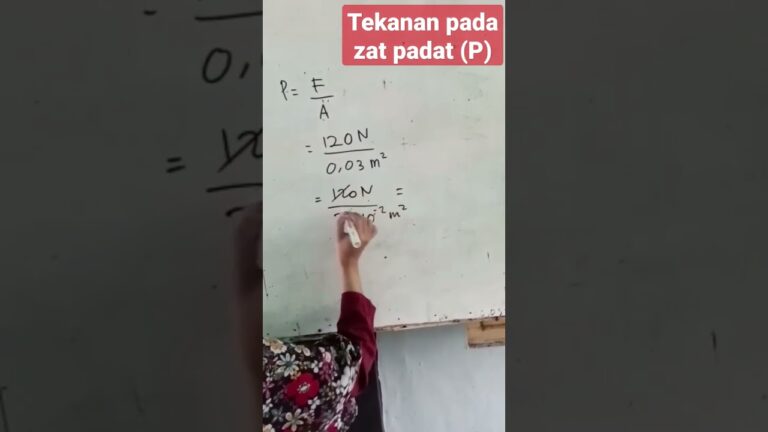 Tekanan pada
zat padat (P)
P = F
A
= 120 N
0,03 m²
= 120 N =
⁻² m²